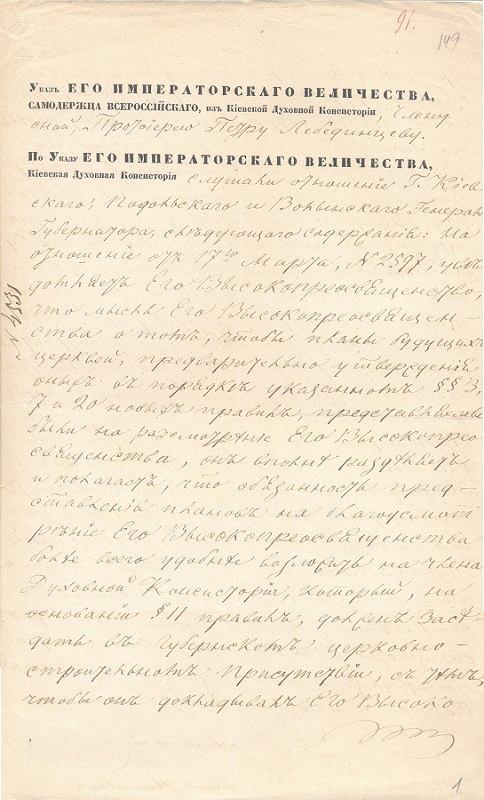 91.
149
Указъ ЕГО ИМПЕРАТОРСКАГО ВЕЛИЧЕСТВА,
САМОДЕРЖЦА ВСЕРОССІЙСКАГО, изъ Кіевской Духовной Консисторіи, Члену
оной, Протоіерею Петру Лебединцеву.
По Указу ЕГО ИМПЕРАТОРСКАГО ВЕЛИЧЕСТВА,
Кіевская Духовная Консисторія слушали отношеніе Г. Кіев
скаго, Подольскаго и Волынскаго Генералъ
Губернатора, слѣдующаго содержанія: На
отношеніе отъ 17го Марта, № 2597, увѣ
домляетъ Его Высокопреосвященство,
что мысль Его Высокопреосвящен-
ства о томъ, чтобы планы будущихъ
церквей, предварительно утвержденія
оныхъ въ порядкѣ указанномъ §§ 3,
7 и 20 новыхъ правилъ, представляемы
были на разсмотрѣніе Его Высокопрео
священства, онъ вполнѣ раздѣляетъ
и полагаетъ, что обязанность пред-
ставленія плановъ на благоусмот
рѣніе Его Высокопреосвященства
болѣе всего удобнѣе возложить на члена
Духовной Консисторіи, который, на
основаніи § 11 правилъ, долженъ засѣ
дать въ губернскомъ церковно-
строительномъ присутствіи, съ тѣмъ,
чтобы онъ докладывалъ Его Высоко
1